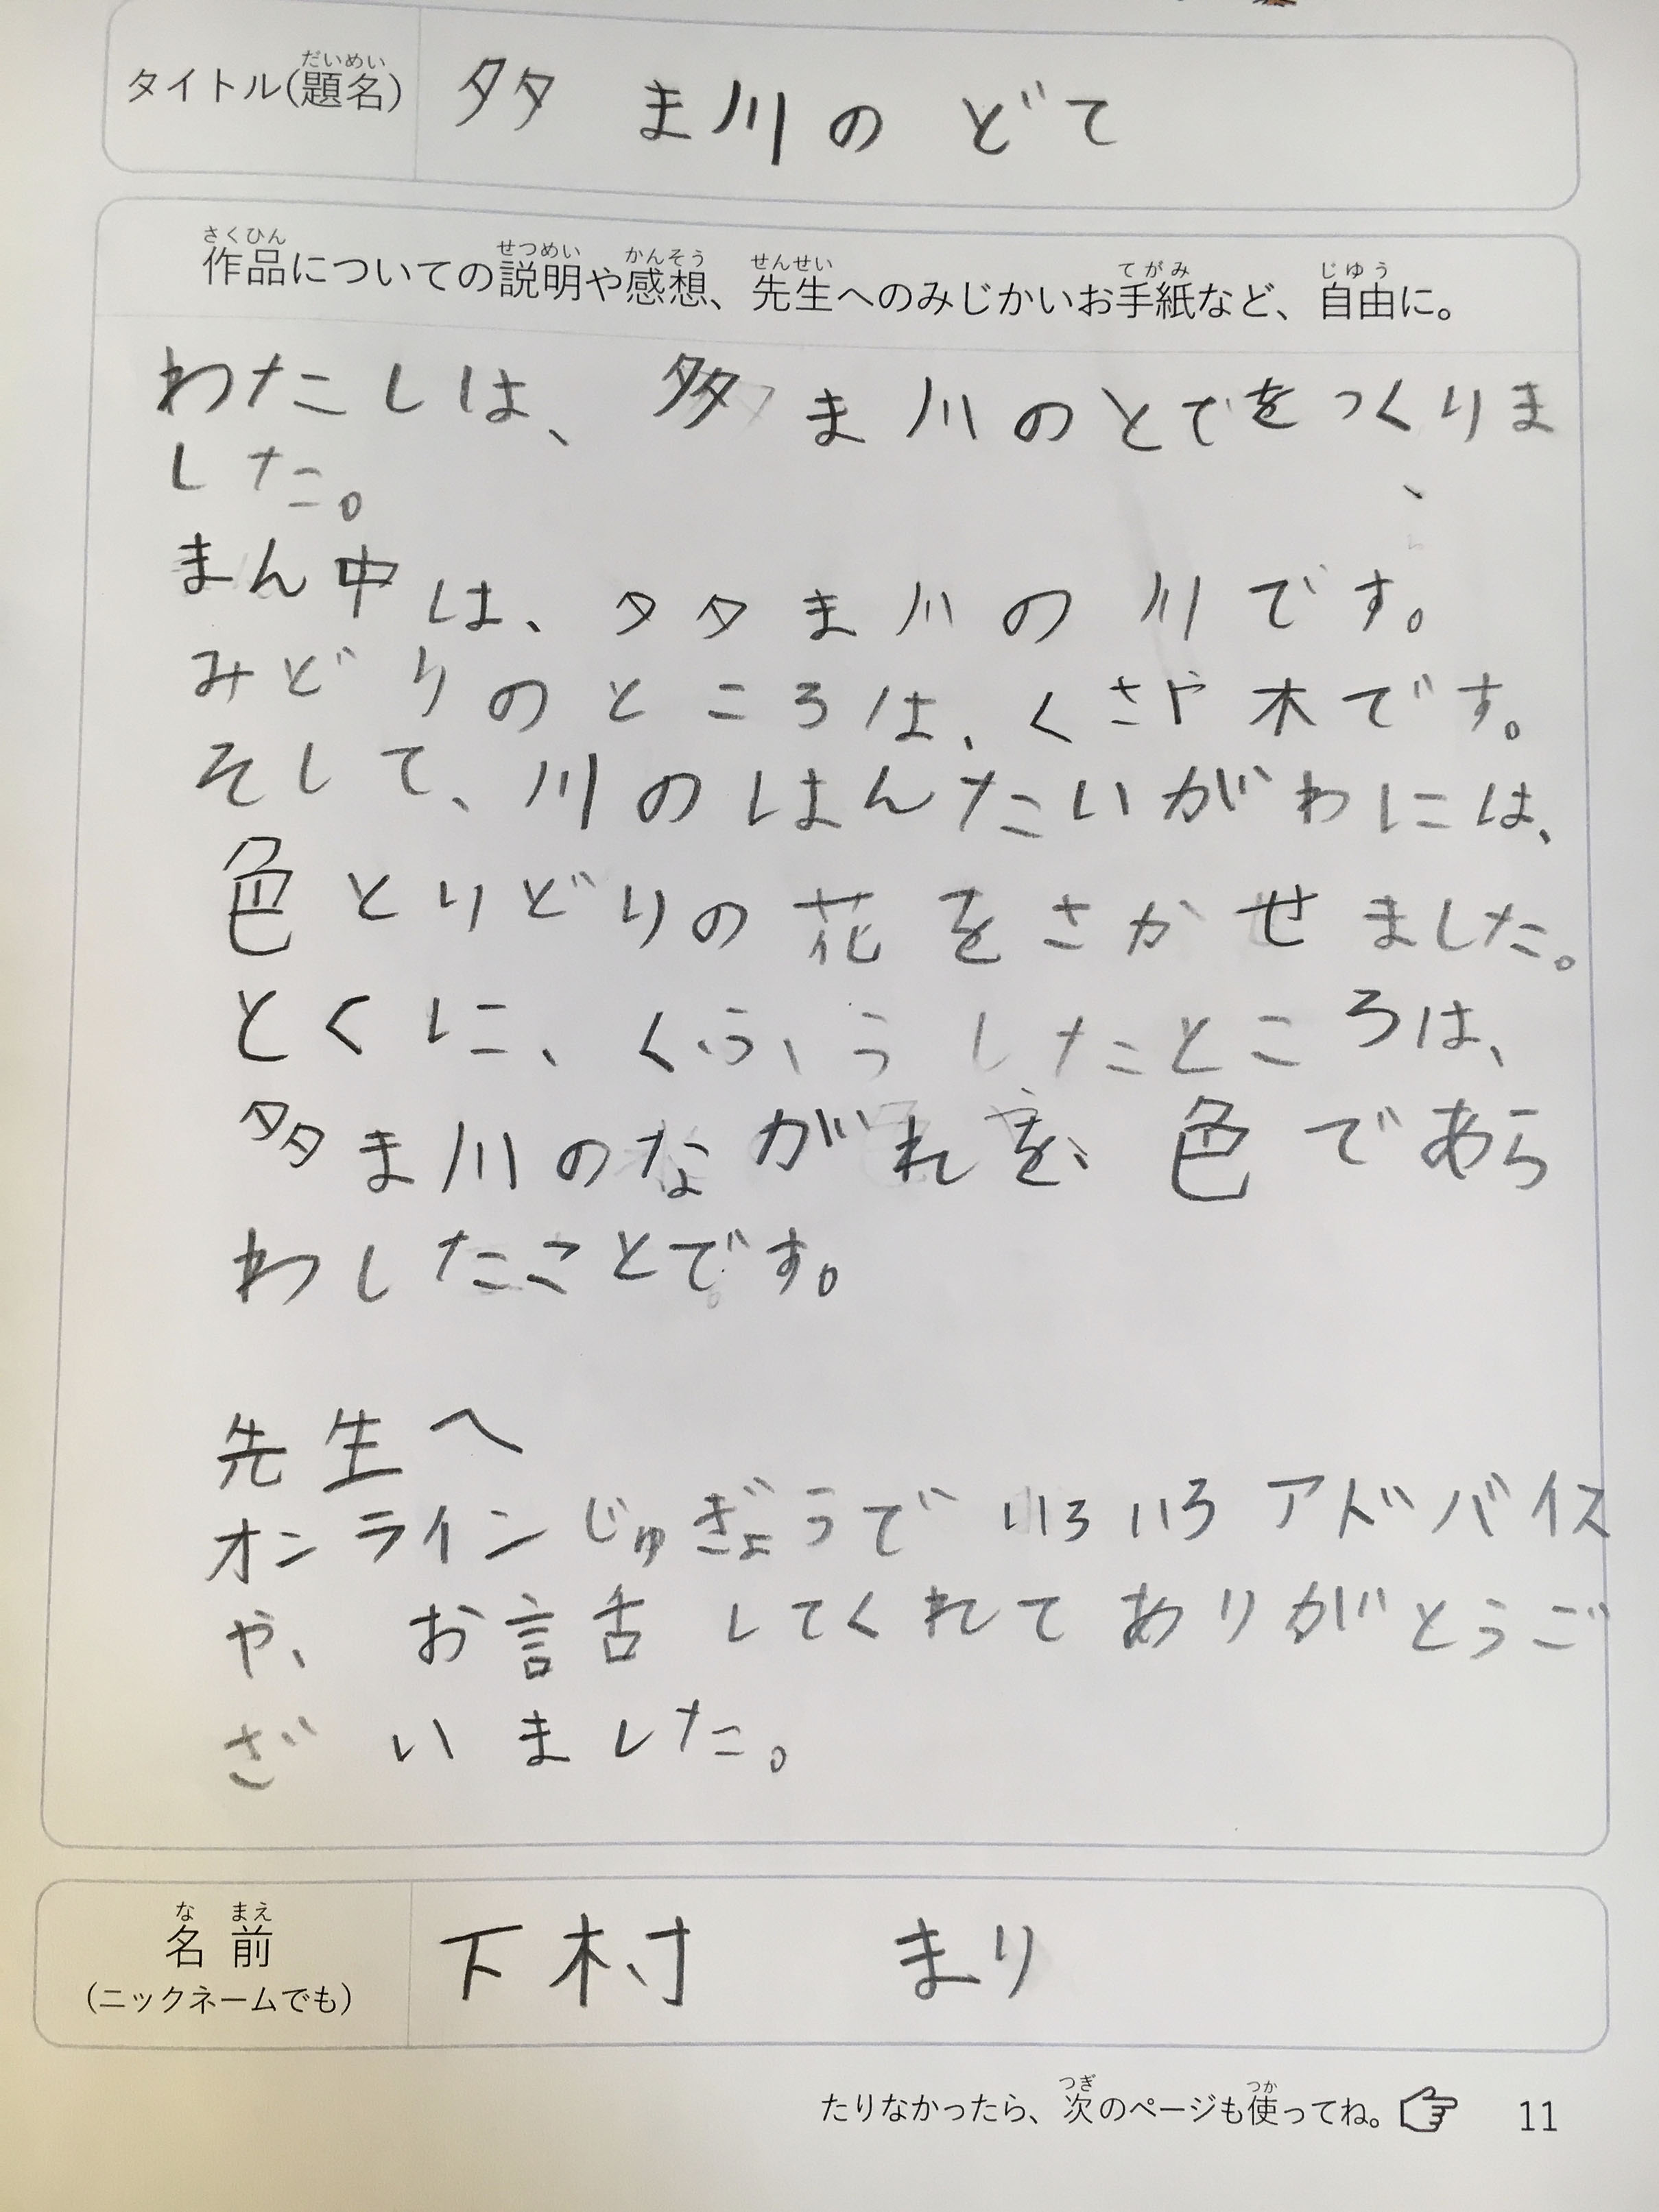 タイトル(題名)
だいめい
多ま川のどて
作品についての説明や感想、先生へのみじかいお手紙など、自由に。
さくひん せつめい かんそう せんせい てがみ じゆう
わたしは、多ま川のとでをつくりま
した。
まん中は、多ま川の川です。
みどりのところは、くさや木です。
そして、川のはんたいがわには、
色とりどりの花をさかせました。
とくに、くふうしたところは、
多ま川のながれを、色であら
わしたことです。
先生へ
オンラインじゅぎょうでいろいろアドバイス
や、お話してくれてありがとうご
ざいました。
名前
な まえ
(ニックネームでも)
下村 まり
たりなかったら、次のページも使ってね。
つぎ つか
11